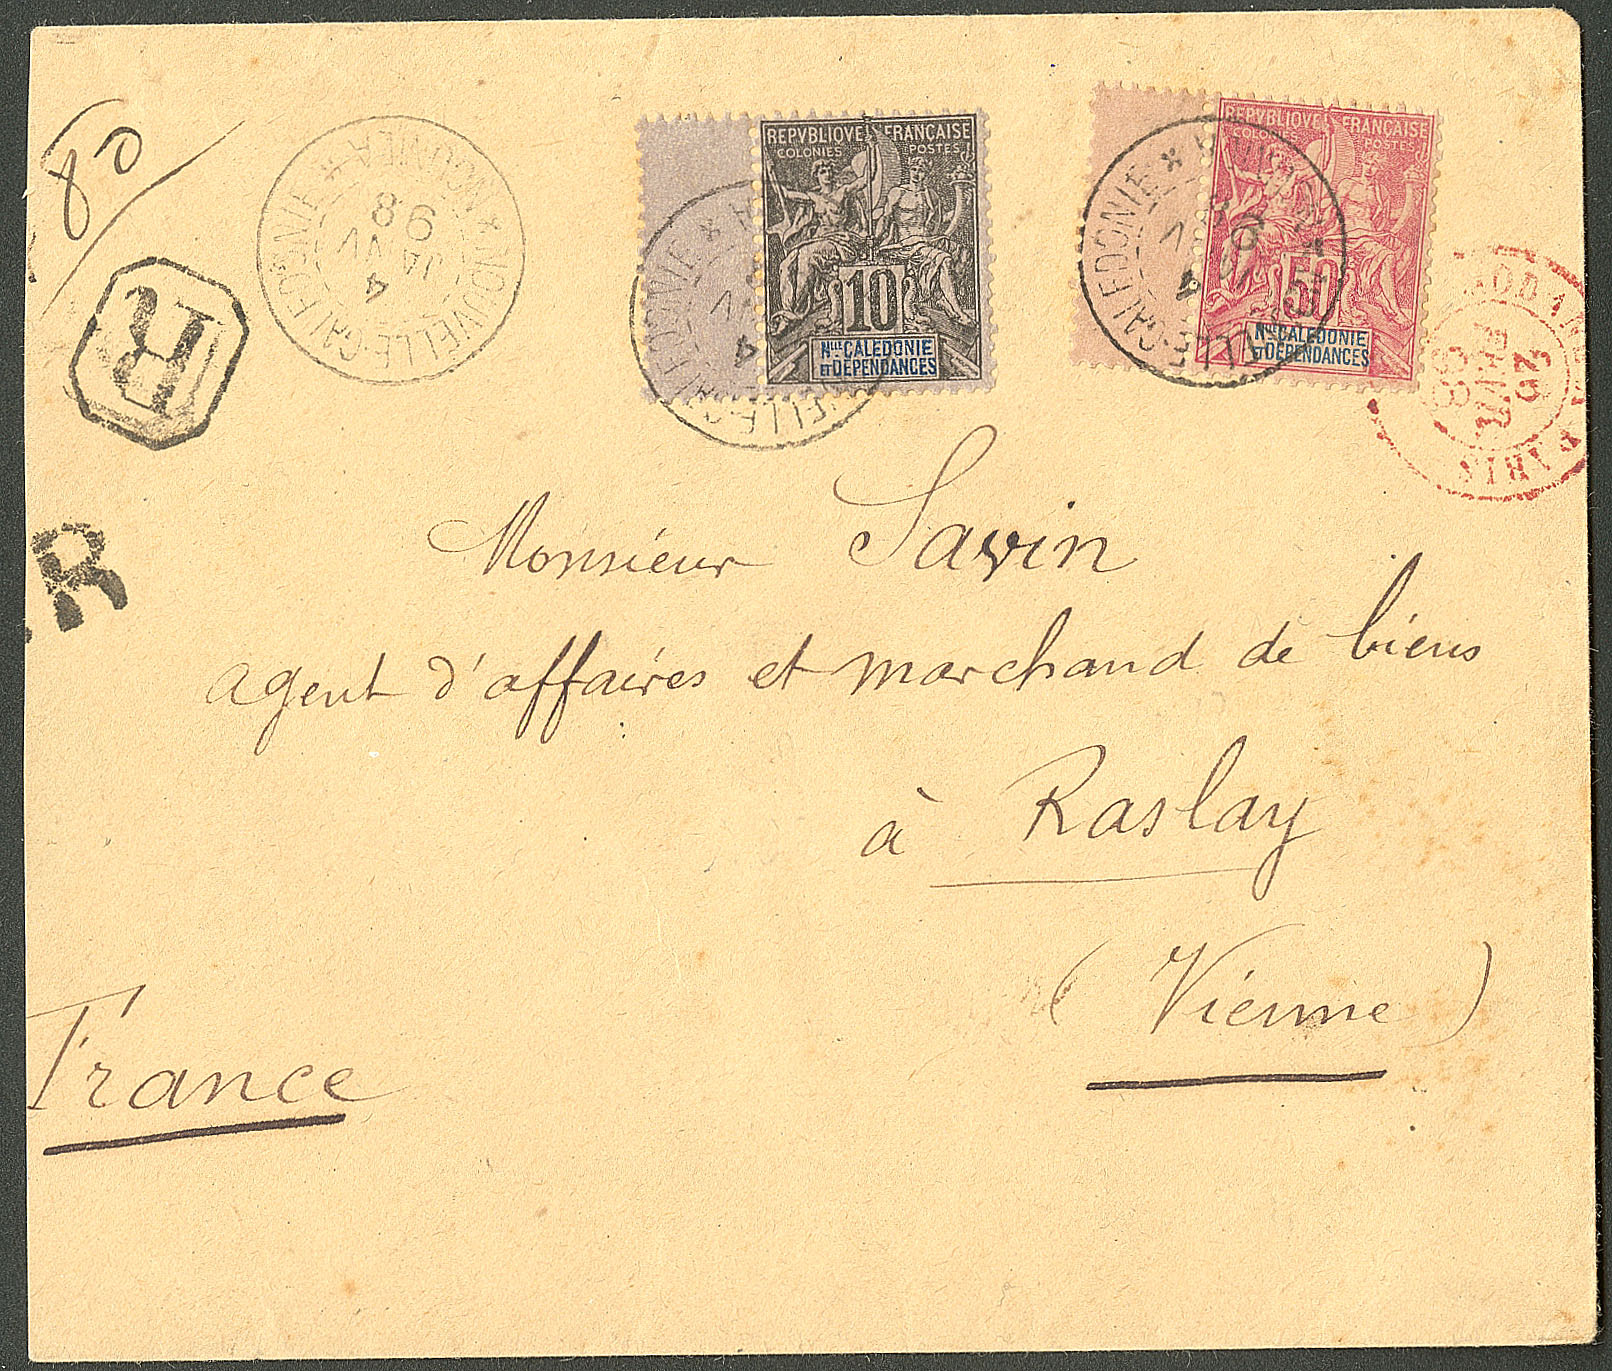 80
R
NOUVELLE-CALEDONIE
4
JANV
98
REPVBLIQVE FRANÇAISE
COLONIES POSTES
10
Nlle CALEDONIE
ET DÉPENDANCES
4
REPVBLIQVE FRANÇAISE
COLONIES POSTES
50
Nlle CALEDONIE
ET DÉPENDANCES
4
PARIS
FEVR
98
R
Monsieur Savin
agent d'affaires et marchand de biens
à Raslay
(Vienne)
France